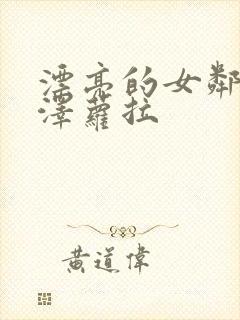 漂亮的女鄰
澤蘿拉
黃道偉